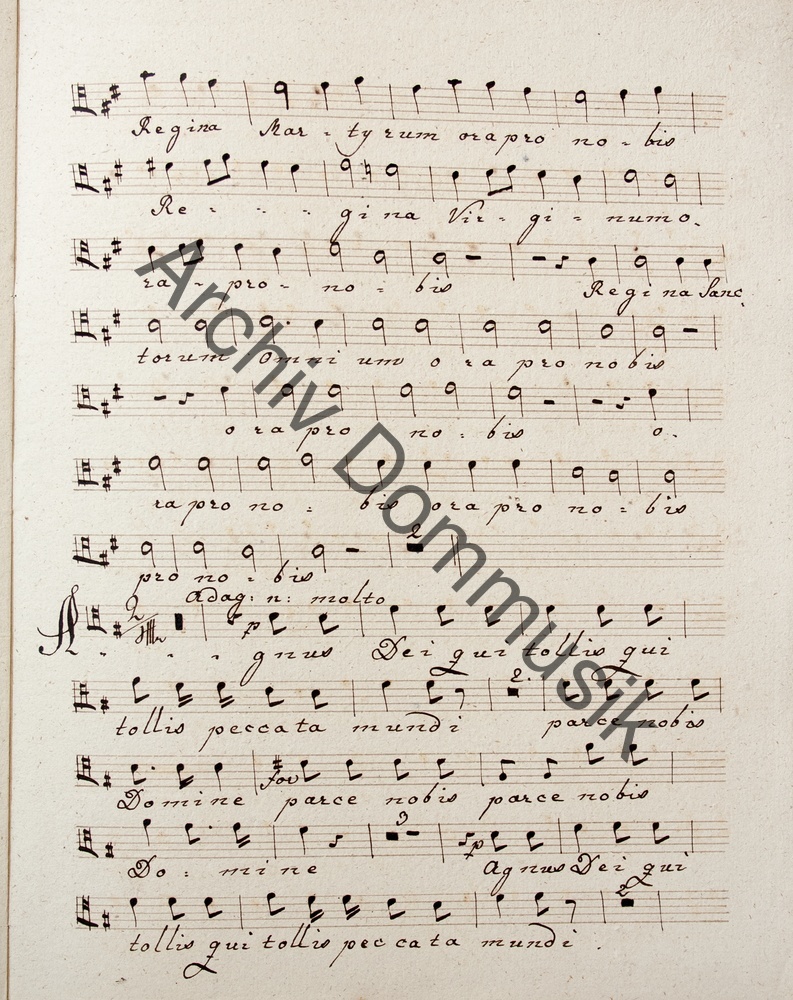 Regina Mar - ty rum ora pro no - bis
Re - - - gi na Vir - gi - num o.
ra - pro - no - bis Regina Sanc.
torum Omni um o ra pro nobis
o ra pro no - bis o.
ra pro no - bis ora pro no = bis
2
pro no - bis
Adag: n: molto
2
p
A - - - gnus Dei qui tollis qui
2.
tollis peccata mundi parce nobis
for
Domine parce nobis parce nobis
3
p
Do - mine Agnus Dei qui
2
tollis qui tollis peccata mundi .
Archiv Dommusik